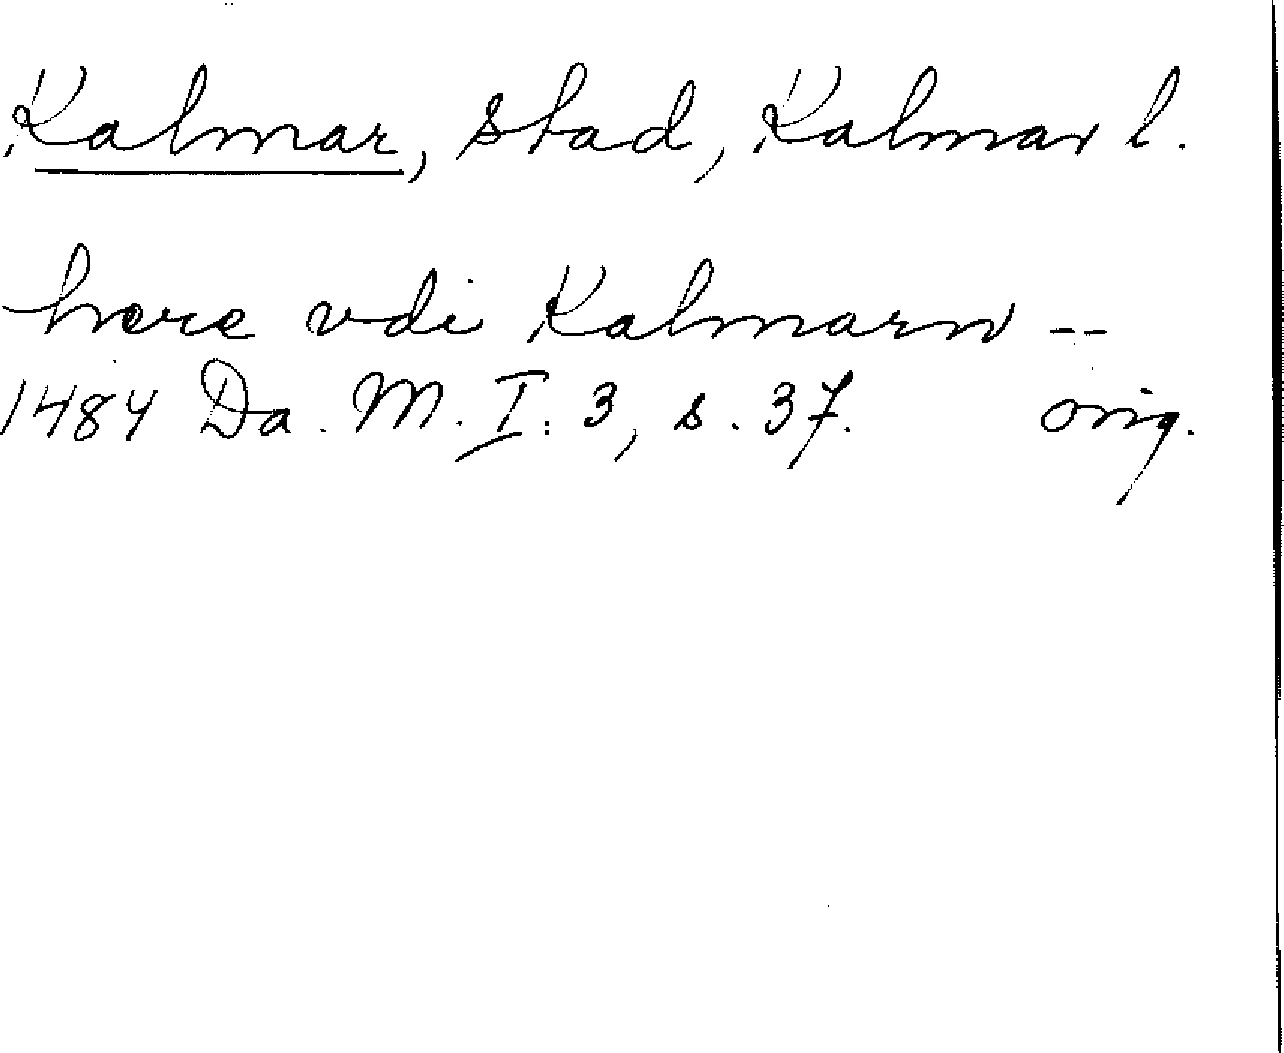 Kalmar, stad, Kalmar l.
here vdi Kalmarn --
1484 Da. M. I: 3, s. 37. orig.